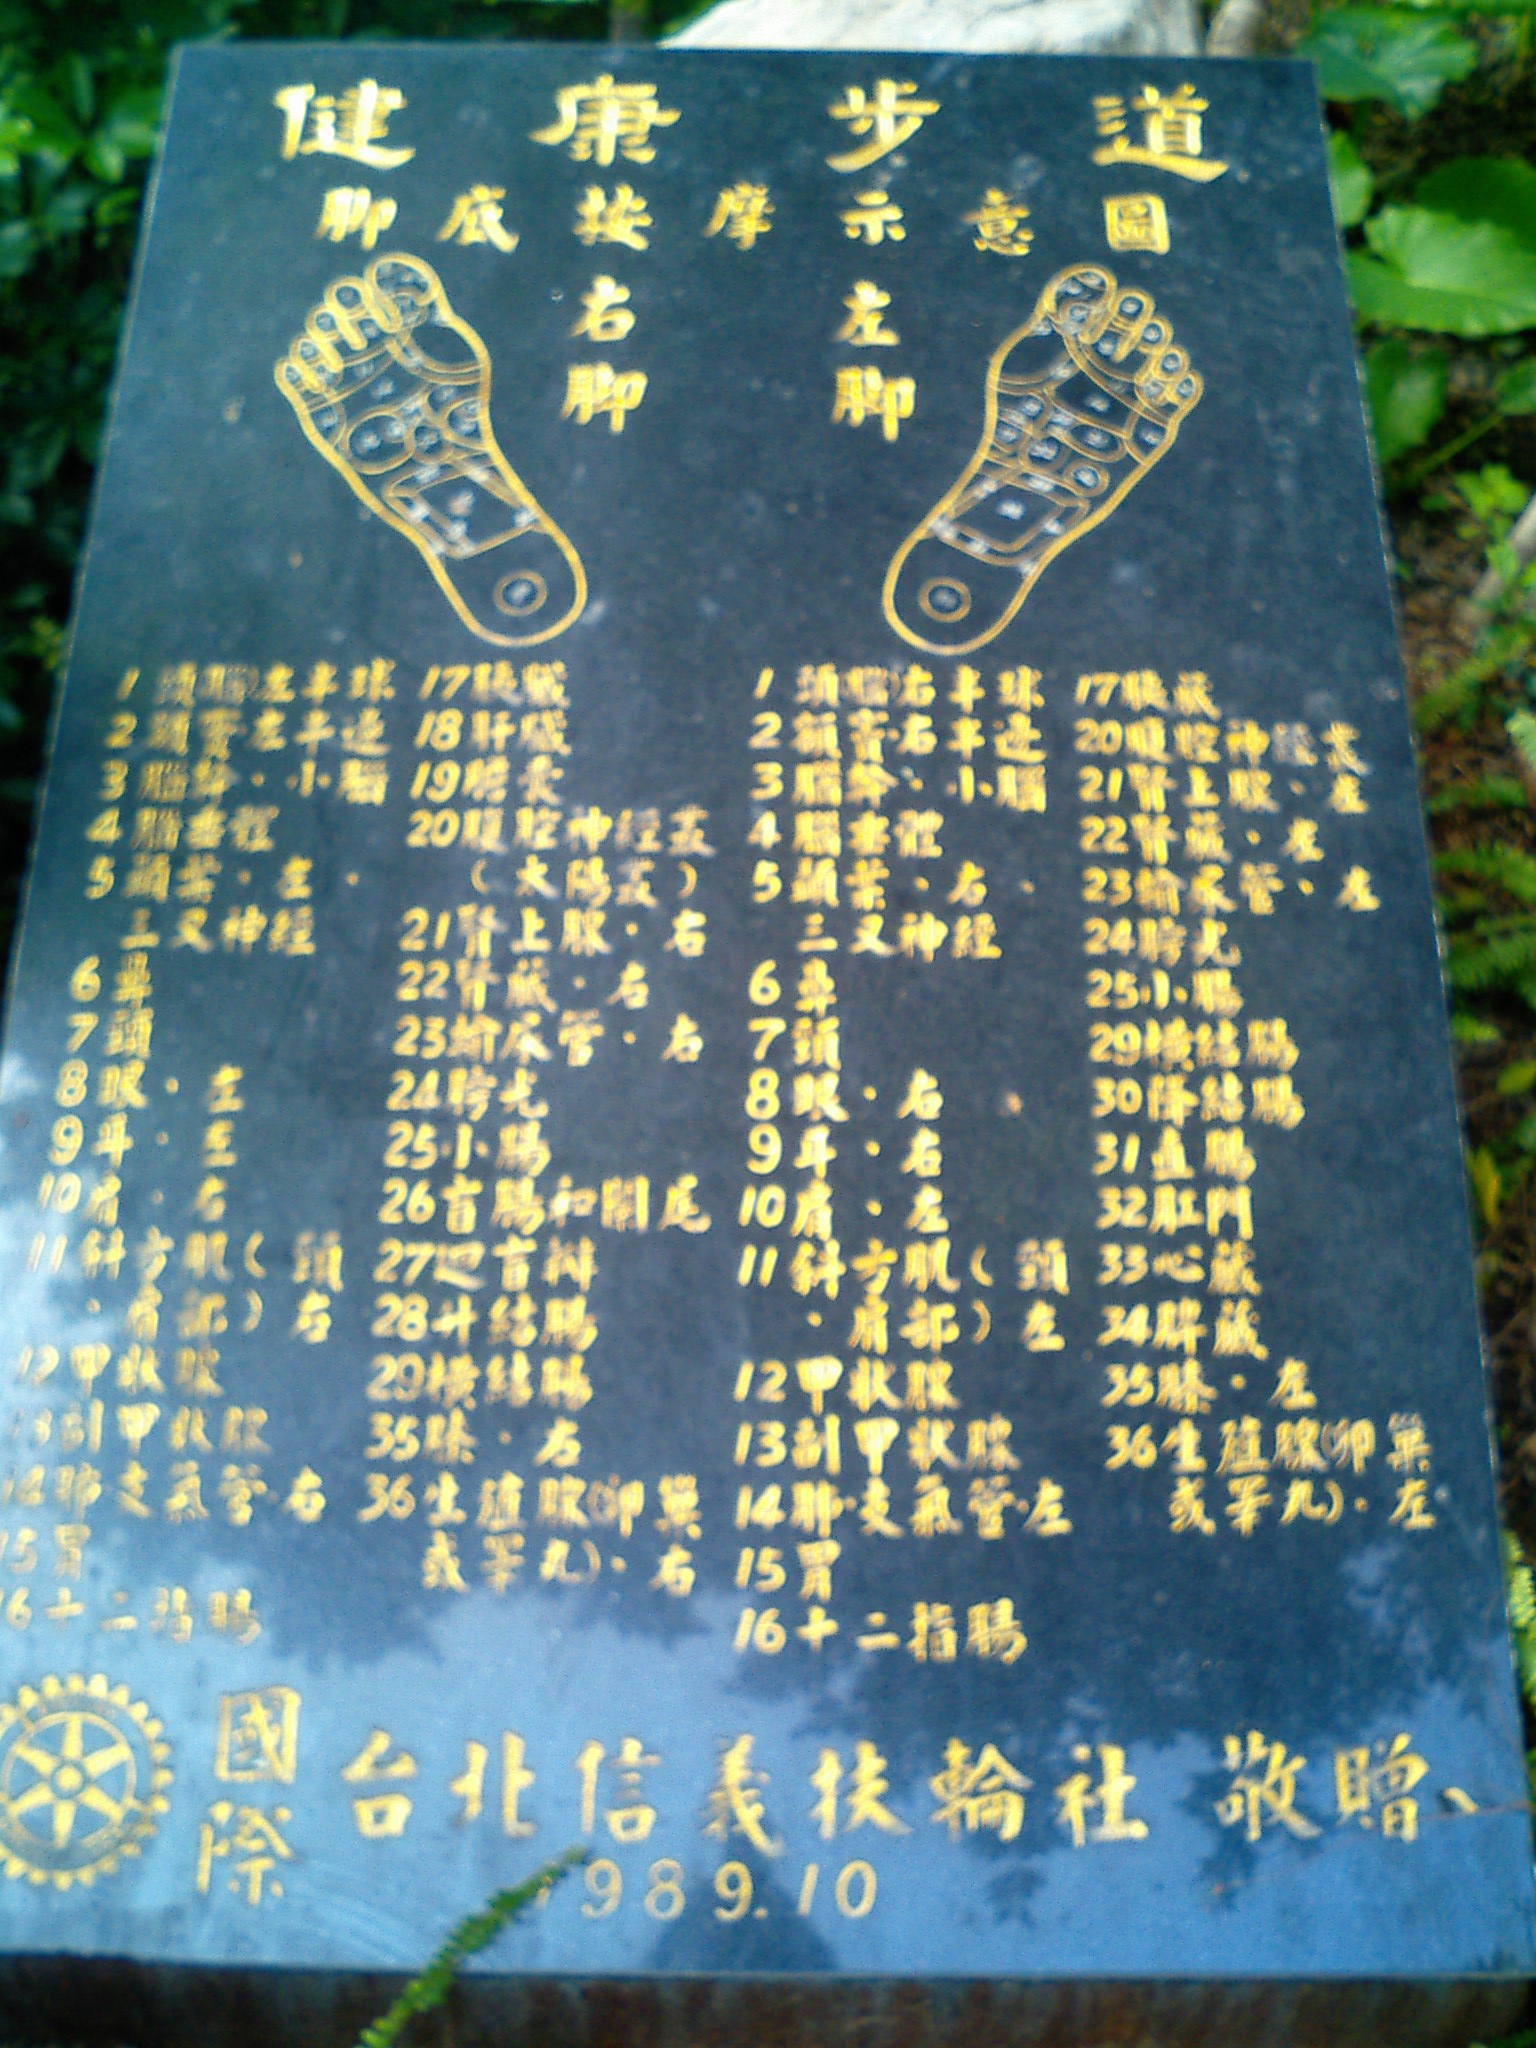 健康步道
脚底按摩示意圖
右脚
左脚
1 頭(腦)左半球
2 頭竇·左半邊
3 腦幹·小腦
4 腦垂體
5 顳葉·左·
三叉神經
6 鼻
7 頭
8 眼·左
9 耳·左
10 肩·右
11 斜方肌(頭
·肩部)右
12 甲狀腺
13 副甲狀腺
14 肺·支氣管·右
15 胃
16 十二指腸
17 胰臟
18 肝臟
19 膽囊
20 腹腔神經叢
(太陽叢)
21 腎上腺·右
22 腎臟·右
23 輸尿管·右
24 膀光
25 小腸
26 盲腸和闌尾
27 迴盲瓣
28 升結腸
29 橫結腸
35 膝·右
36 生殖腺(卵巢
或睪丸)·右
1 頭(腦)右半球
2 額竇·右半邊
3 腦幹·小腦
4 腦垂體
5 顳葉·右·
三叉神經
6 鼻
7 頭
8 眼·右
9 耳·右
10 肩·左
11 斜方肌(頭
·肩部)左
12 甲狀腺
13 副甲狀腺
14 肺·支氣管·左
15 胃
16 十二指腸
17 胰臟
20 腹腔神經叢
21 腎上腺·左
22 腎臟·左
23 輸尿管·左
24 膀光
25 小腸
29 橫結腸
30 降結腸
31 直腸
32 肛門
33 心臟
34 脾臟
35 膝·左
36 生殖腺(卵巢
或睪丸)·左
國際
台北信義扶輪社 敬贈
1989.10